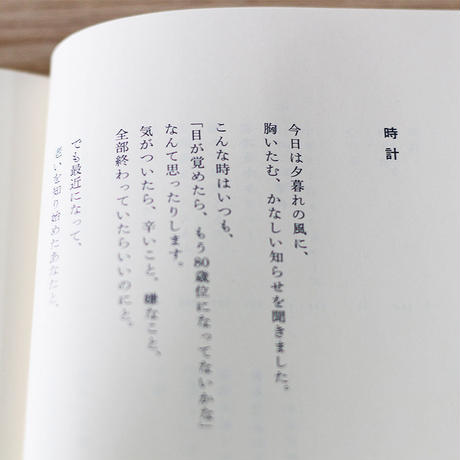 時計
今日は夕暮れの風に、
胸いたむ、かなしい知らせを聞きました。
こんな時はいつも、
「目が覚めたら、もう80歳位になってないかな」
なんて思ったりします。
気がついたら、辛いこと、嫌なこと、
全部終わっていたらいいのにと。
でも最近になって、
老いを知り始めたあなたと、